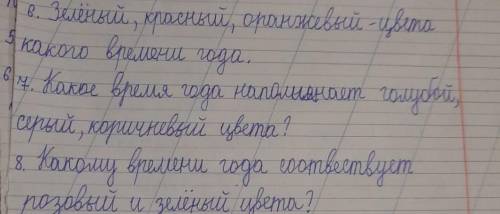 6. Зелёный, красный, оранжевый - цвета
5 какого времени года.
6 7. Какое время года напоминает голубой,
серый, коричневый цвета?
8. Какому времени года соотвествует
розовый и зелёный цвета?